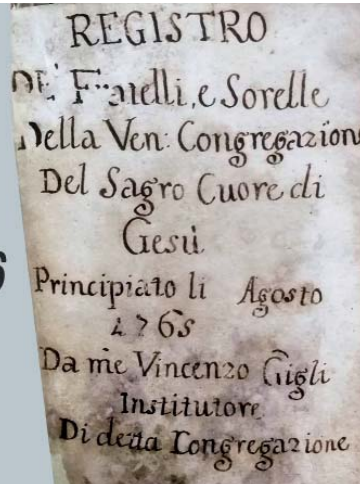 REGISTRO
DE' Fratelli, e Sorelle
Della Ven: Congregazion
Del Sagro Cuore di
Gesù
Principiato li Agosto
1765
Da me Vincenzo Gigli
Institutore
Di detta Congregazione
6